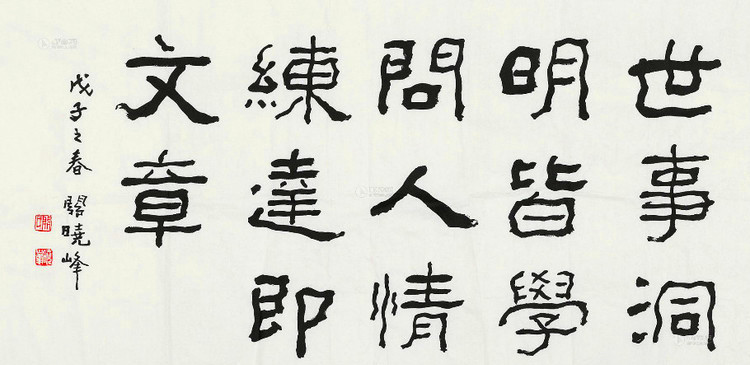 世事洞
明皆學
問人情
練達即
文章
戊子之春 關曉峰